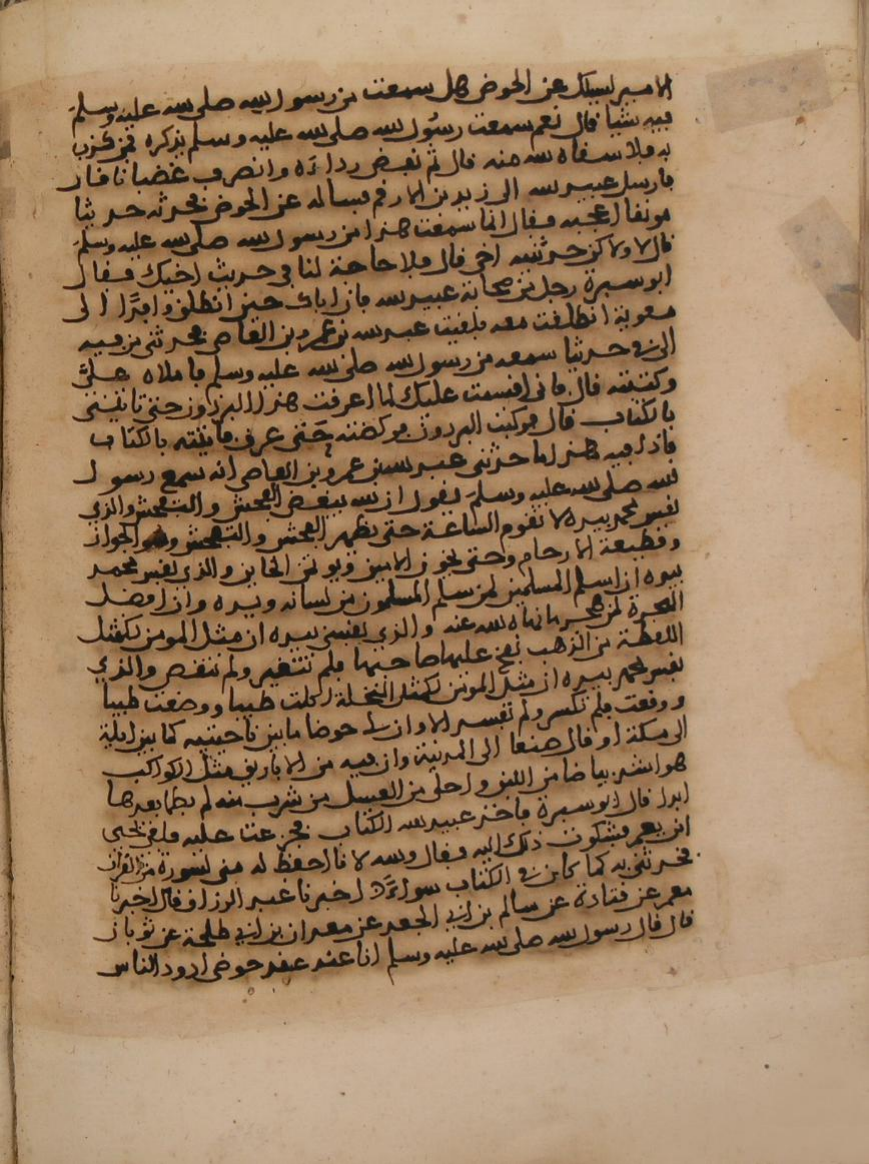 الامير ليسلك عن الحوض هل سمعت من رسول الله صلى الله عليه وسلم
فيه شيا قال نعم سمعت رسول الله صلى الله عليه وسلم يذكره فمن كذب
به فلا سقاه الله منه قال ثم نفض رداءه وانصرف غضبانا قال
فارسل عبيد الله الى زيد بن الارقم فساله عن الحوض فحدثه حديثا
مونقا اعجبه فقال انما سمعت هذا من رسول الله صلى الله عليه وسلم
قال لا ولاكن حدثنيه اخي قال فلا حاجة لنا في حديث اخيك فقال
ابو سبرة رجل من صحابة عبيد الله فان اباك حين انطلق وافدا الى
معوية انطلقت معه فلقيت عبد الله بن عمرو بن العاصي فحدثني من فيه
الى في حديثا سمعه من رسول الله صلى الله عليه وسلم فاملاه علي
وكتبته قال فاني اقسمت عليك لما اعرقت هذا البرذون حتى تاتيني
بالكتاب قال فركبت البرذون فركضته حتى عرق فاتيته بالكتاب
فاذا فيه هذا ما حدثني عبد الله بن عمرو بن العاصي انه سمع رسول
الله صلى الله عليه وسلم يقول ان الله يبغض الفحش والتفحش والذي
نفس محمد بيده لا تقوم الساعة حتى يظهر الفحش والتفحش وسو الجوار
وقطيعة الارحام وحتى يخون الامين ويوتمن الخاين والذي نفس محمد
بيده ان اسلم المسلمين لمن سلم المسلمون من لسانه ويده وان افضل
الهجرة لمن هجر ما نهاه الله عنه والذي نفسي بيده ان مثل المومن كمثل
القطعة من الذهب نفخ عليها صاحبها فلم تتغير ولم تنقص والذي
نفس محمد بيده ان مثل المومن كمثل النحلة اكلت طيبا ووضعت طيبا
ووقعت فلم تكسر ولم تفسد الا وان لي حوضا ما بين ناحيتيه كما بين ايلة
الى مكة او قال صنعا الى المدينة وان فيه من الاباريق مثل الكواكب
هو اشد بياضا من اللبن واحلى من العسل من شرب منه لم يظما بعدها
ابدا قال ابو سبرة فاخذ عبيد الله الكتاب فجزعت عليه فلقي يحيى
ابن يعمر فشكوت ذلك اليه فقال والله لانا احفظ له مني لسورة من القران
فحدثني به كما كان في الكتاب سواء اخبرنا عبد الرزاق قال اخبرنا
معمر عن قتادة عن سالم بن ابي الجعد عن معدان بن ابي طلحة عن ثوبان
قال قال رسول الله صلى الله عليه وسلم انا عند عقر حوضي اذود الناس